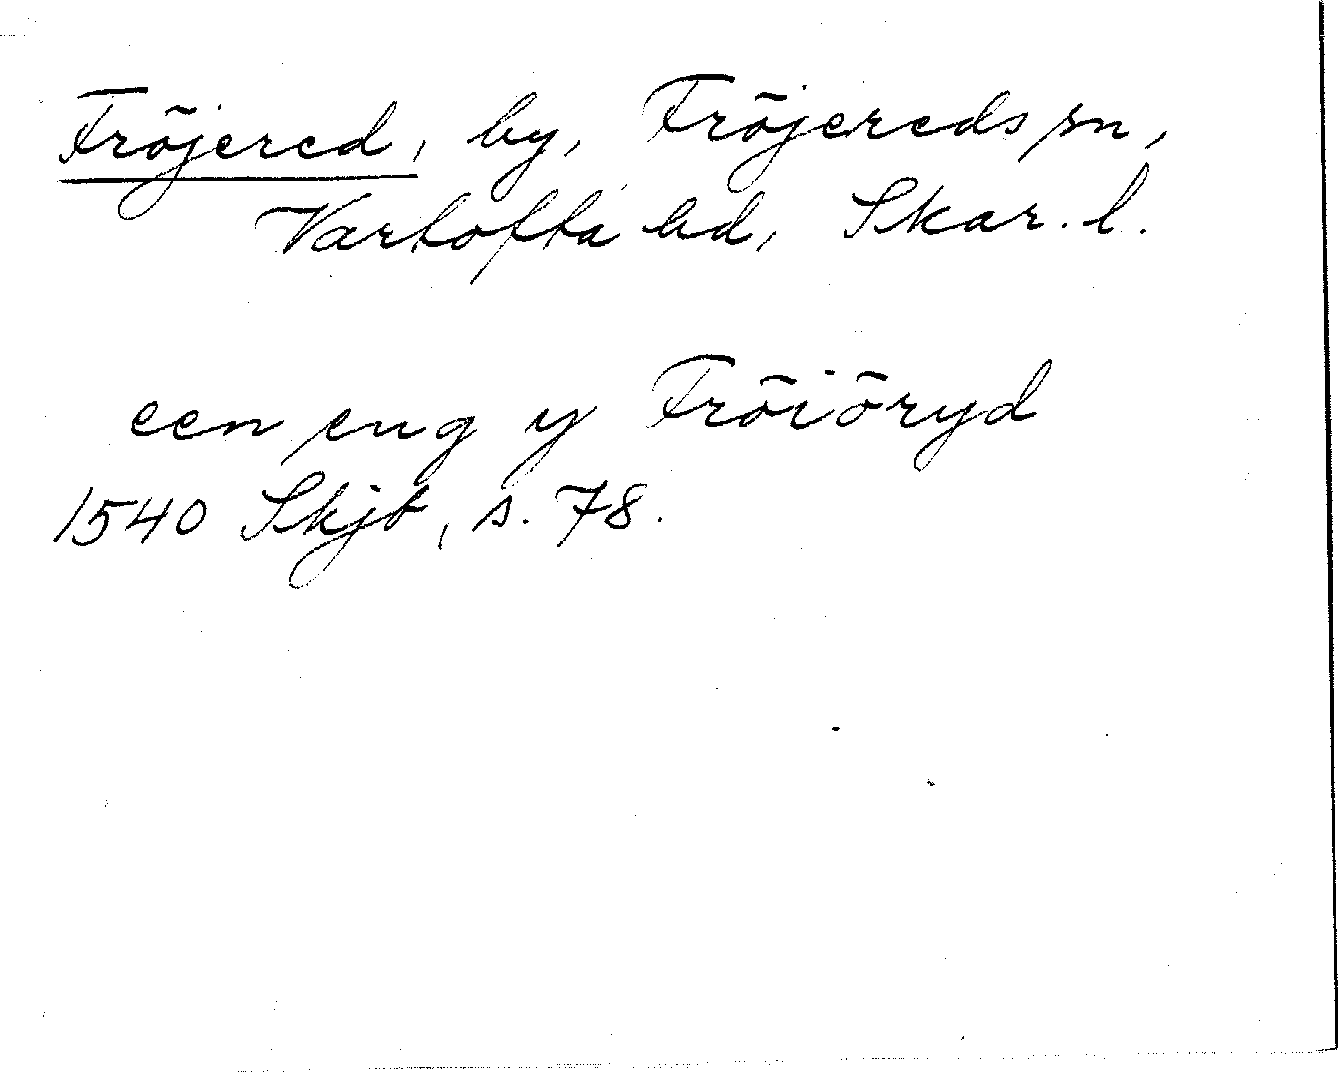 Fröjered, by, Fröjereds sn,
Vartofta hd, Skar. l.
een eng y Fröiöryd
1540 Skjb, s. 78.